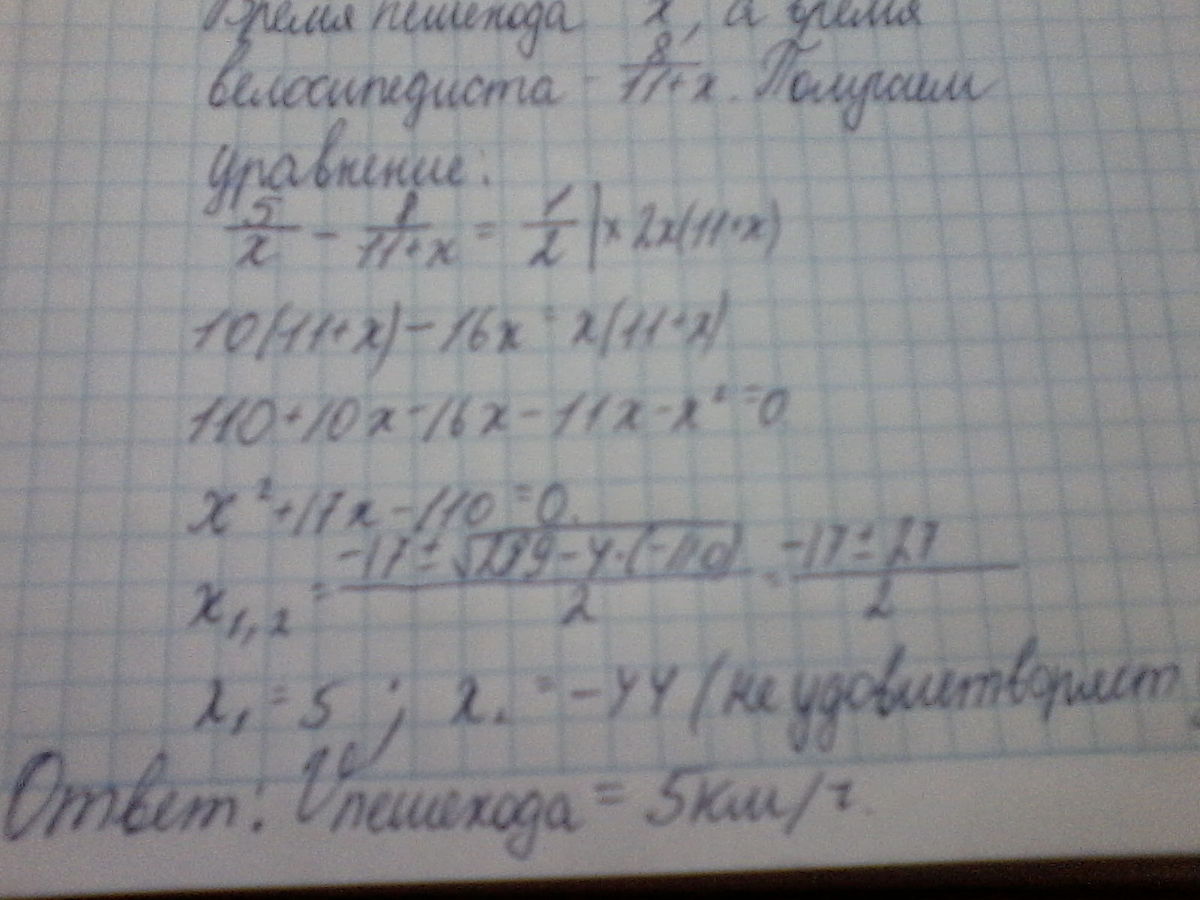 Время пешехода x, а время
велосипедиста - 8/11+x. Получаем
уравнение:
5/x - 8/11+x = 1/2 | × 2x(11+x)
10(11+x) - 16x = x(11+x)
110+10x-16x-11x-x²=0
x²+17x-110=0.
x₁,₂ = -17±√289-4·(-110)/2 = -17±27/2
x₁ = 5 ; x. = -44 (не удовлетворяет
Ответ: Vпешехода = 5км/ч.